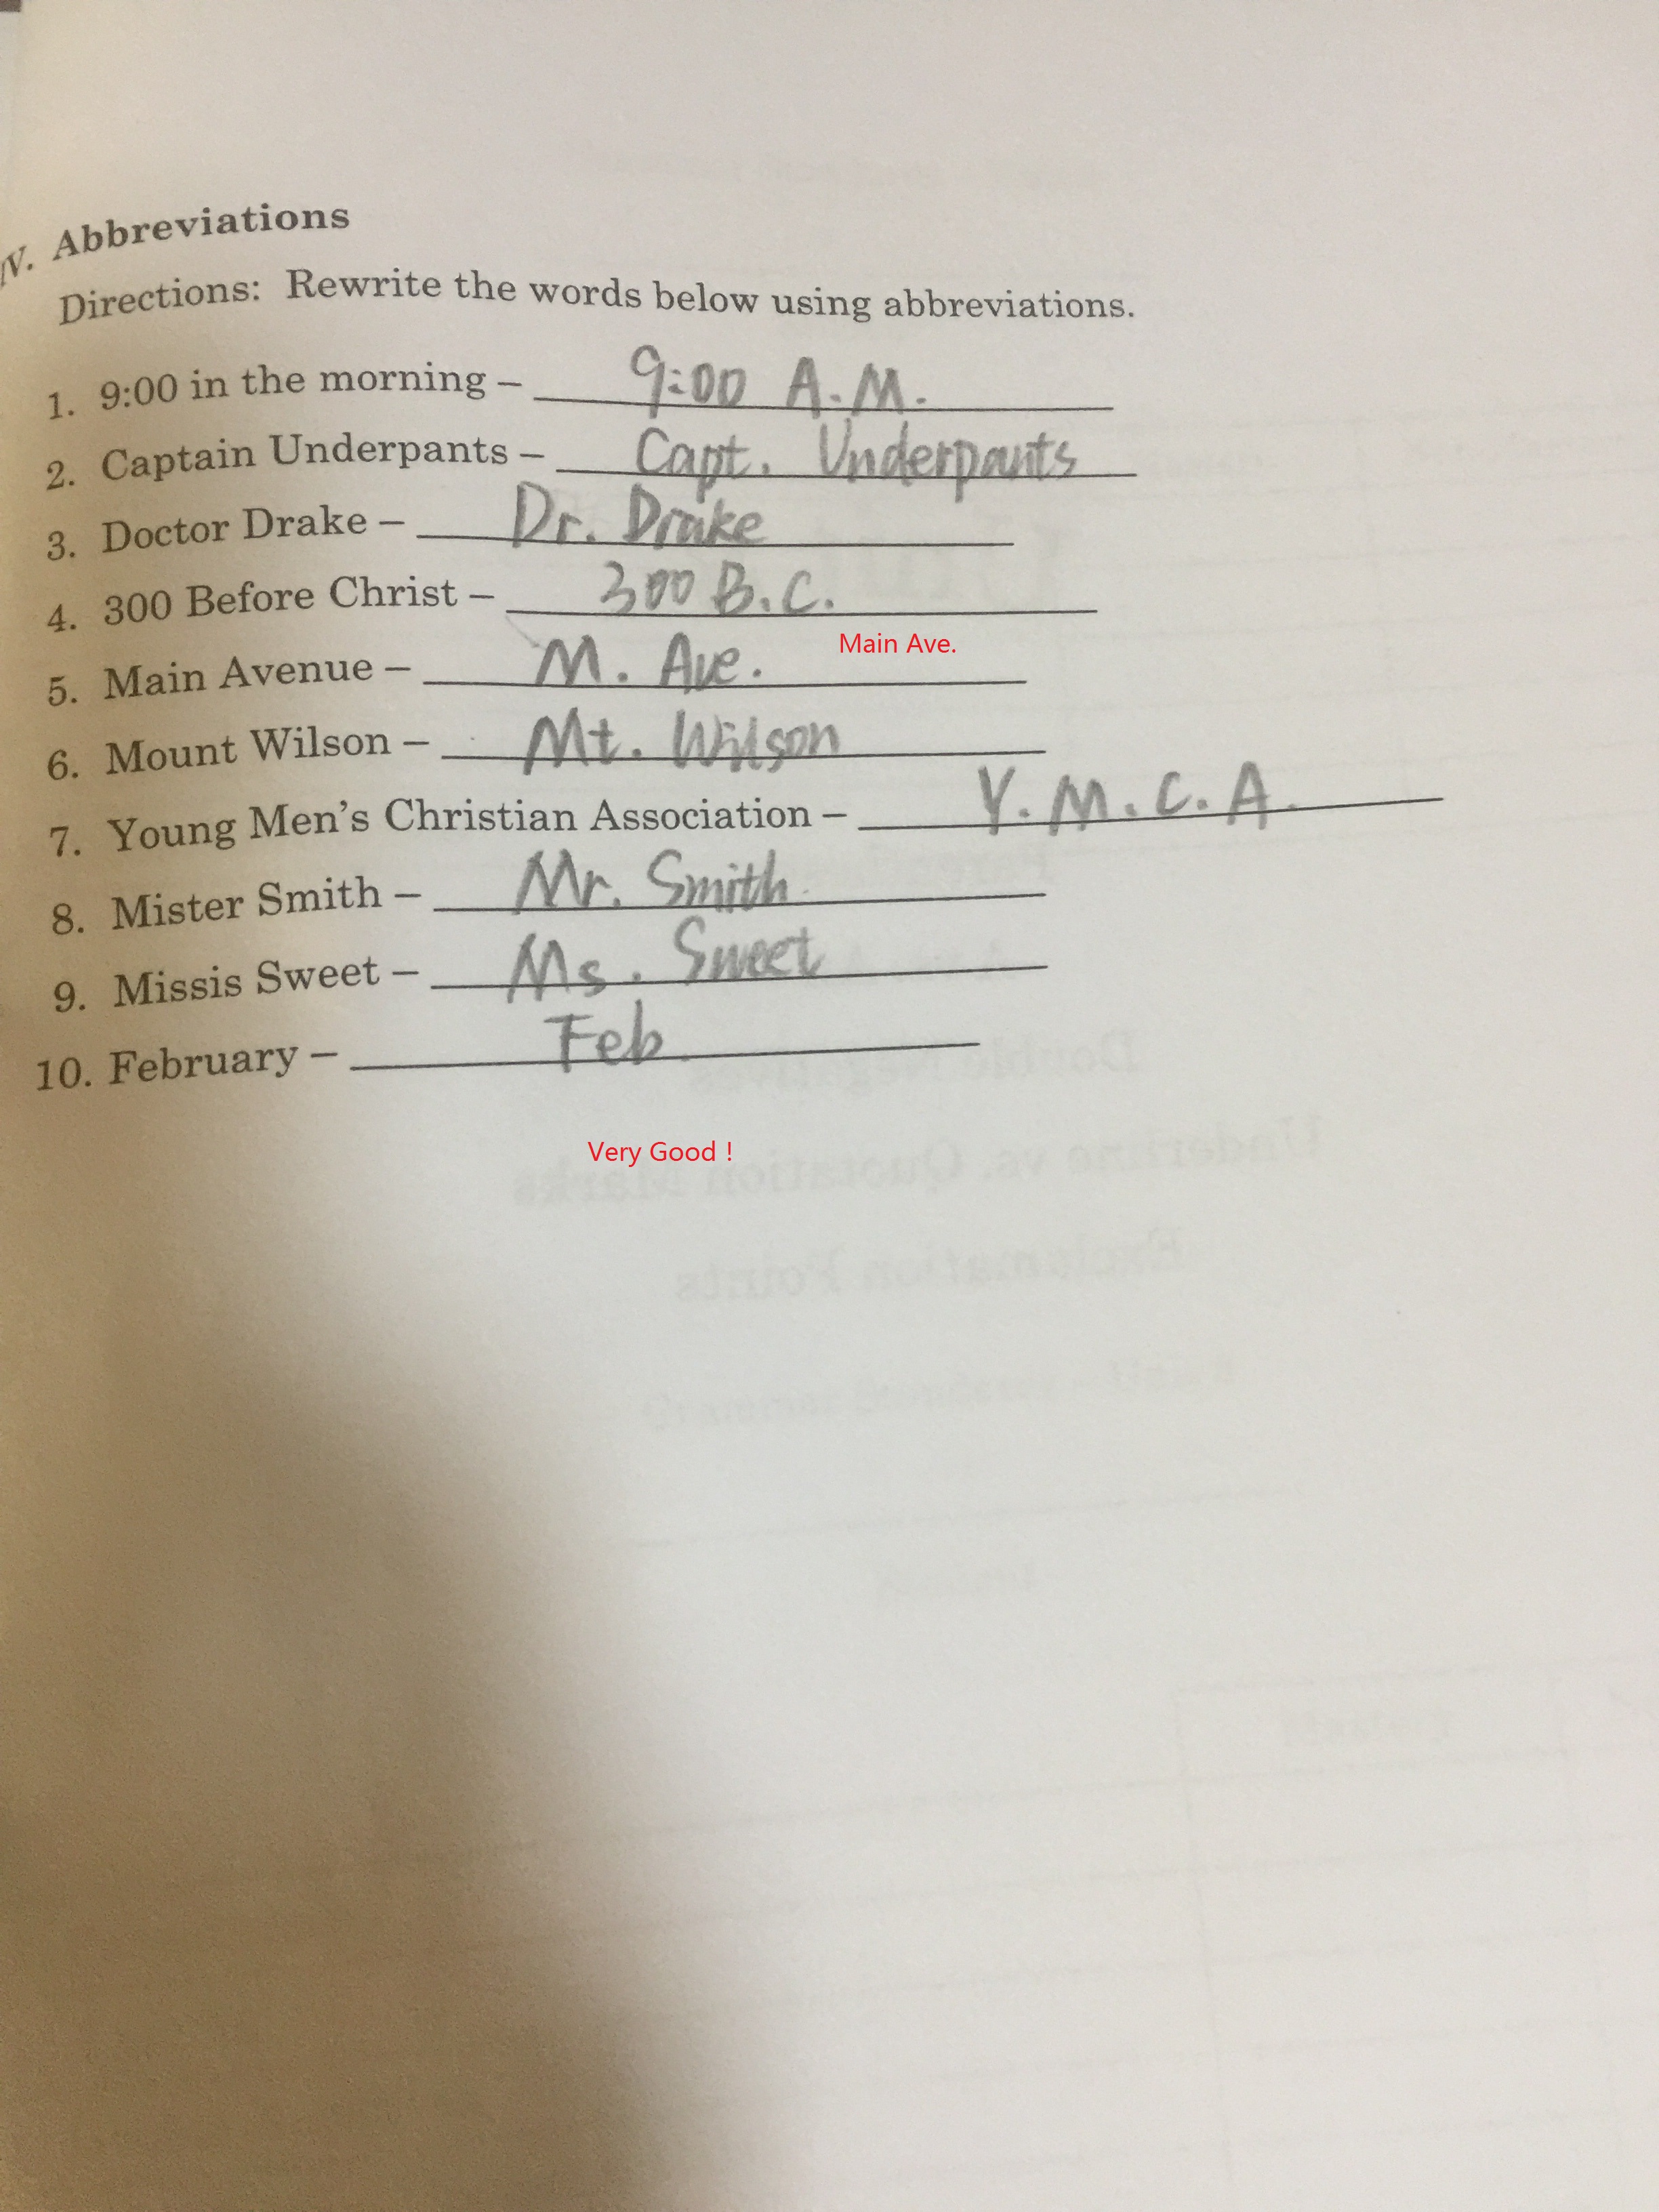 IV. Abbreviations
Directions: Rewrite the words below using abbreviations.
1. 9:00 in the morning – 9:00 A.M.
2. Captain Underpants – Capt. Underpants
3. Doctor Drake – Dr. Drake
4. 300 Before Christ – 300 B.C.
Main Ave.
5. Main Avenue – M. Ave.
6. Mount Wilson – Mt. Wilson
7. Young Men's Christian Association – Y.M.C.A.
8. Mister Smith – Mr. Smith
9. Missis Sweet – Ms. Sweet
10. February – Feb.
Very Good !
Double Negatives
Underline vs. Quotation Marks
Exclamation Points